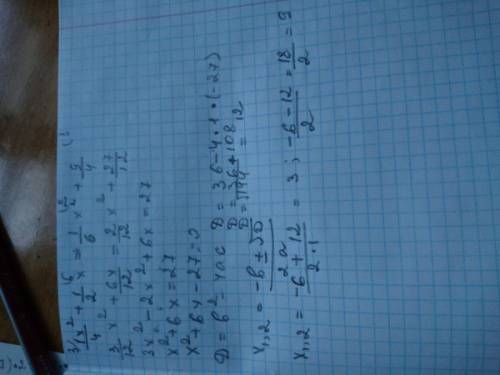 1/4 x² + 1/2 x = 1/6 x² + 9/4
3/12 x² + 6x/12 = 2/12 x² + 27/12
3x² - 2x² + 6x = 27
x² + 6x = 27
x² + 6x - 27 = 0
D = b² - 4ac D = 36 - 4 · 1 · (-27)
D = 36 + 108
D = √144 = 12
x₁,₂ = -b ± √D / 2a
x₁,₂ = -6 + 12 / 2 · 1 = 3 ; -6 - 12 / 2 = 18 / 2 = 9